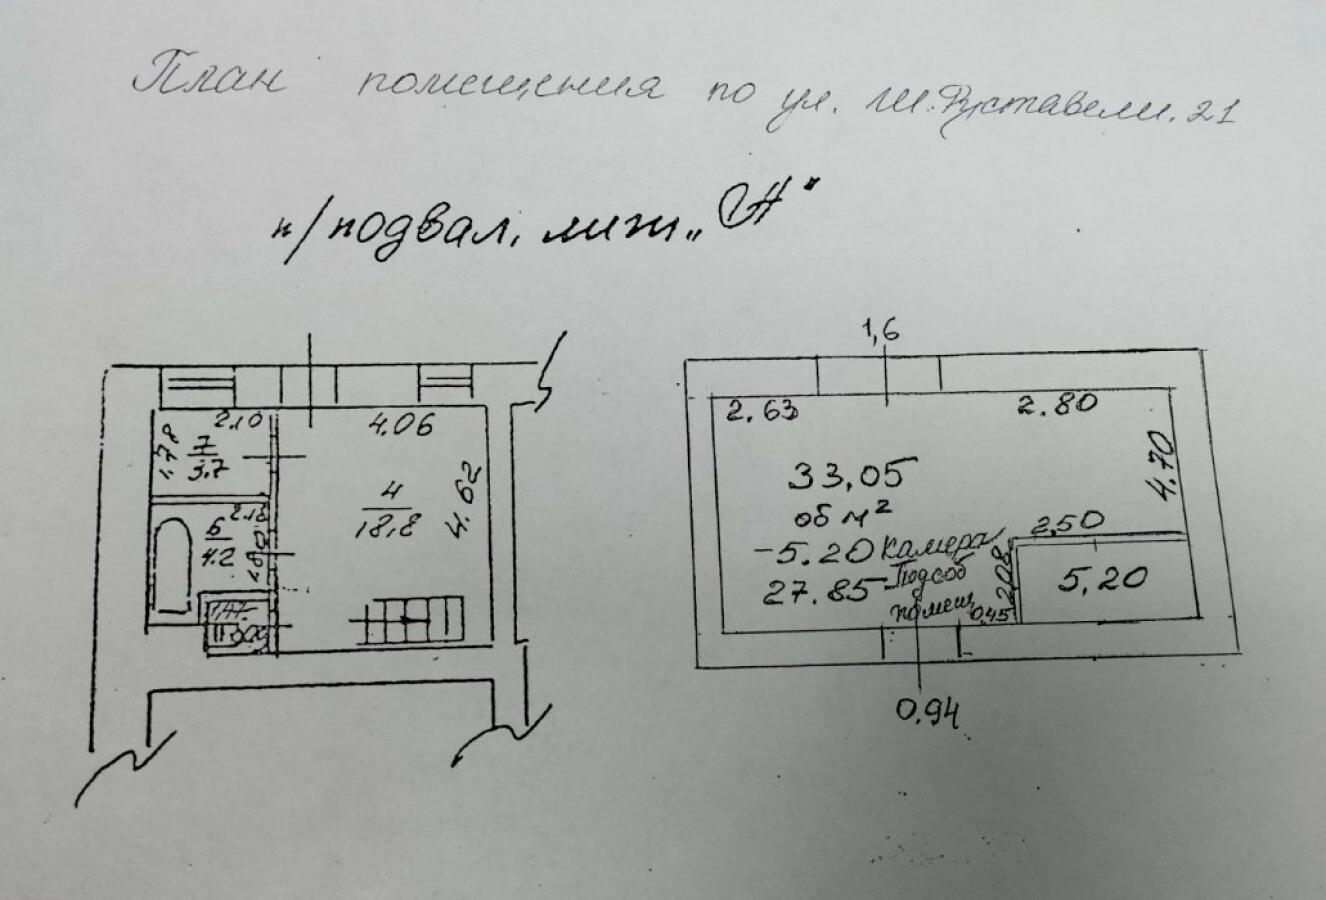 План помещения по ул. Ш.Руставели.21
п/подвал, лит „А"
2.10
4.06
1.78
7
3.7
4
18,8
4.62
2.18
6
4.2
1,6
2.63
2.80
4.70
33,05
об м²
-5.20 камера
27.85 Подсоб
помещ
2.50
2.08
5,20
0,45
0.94